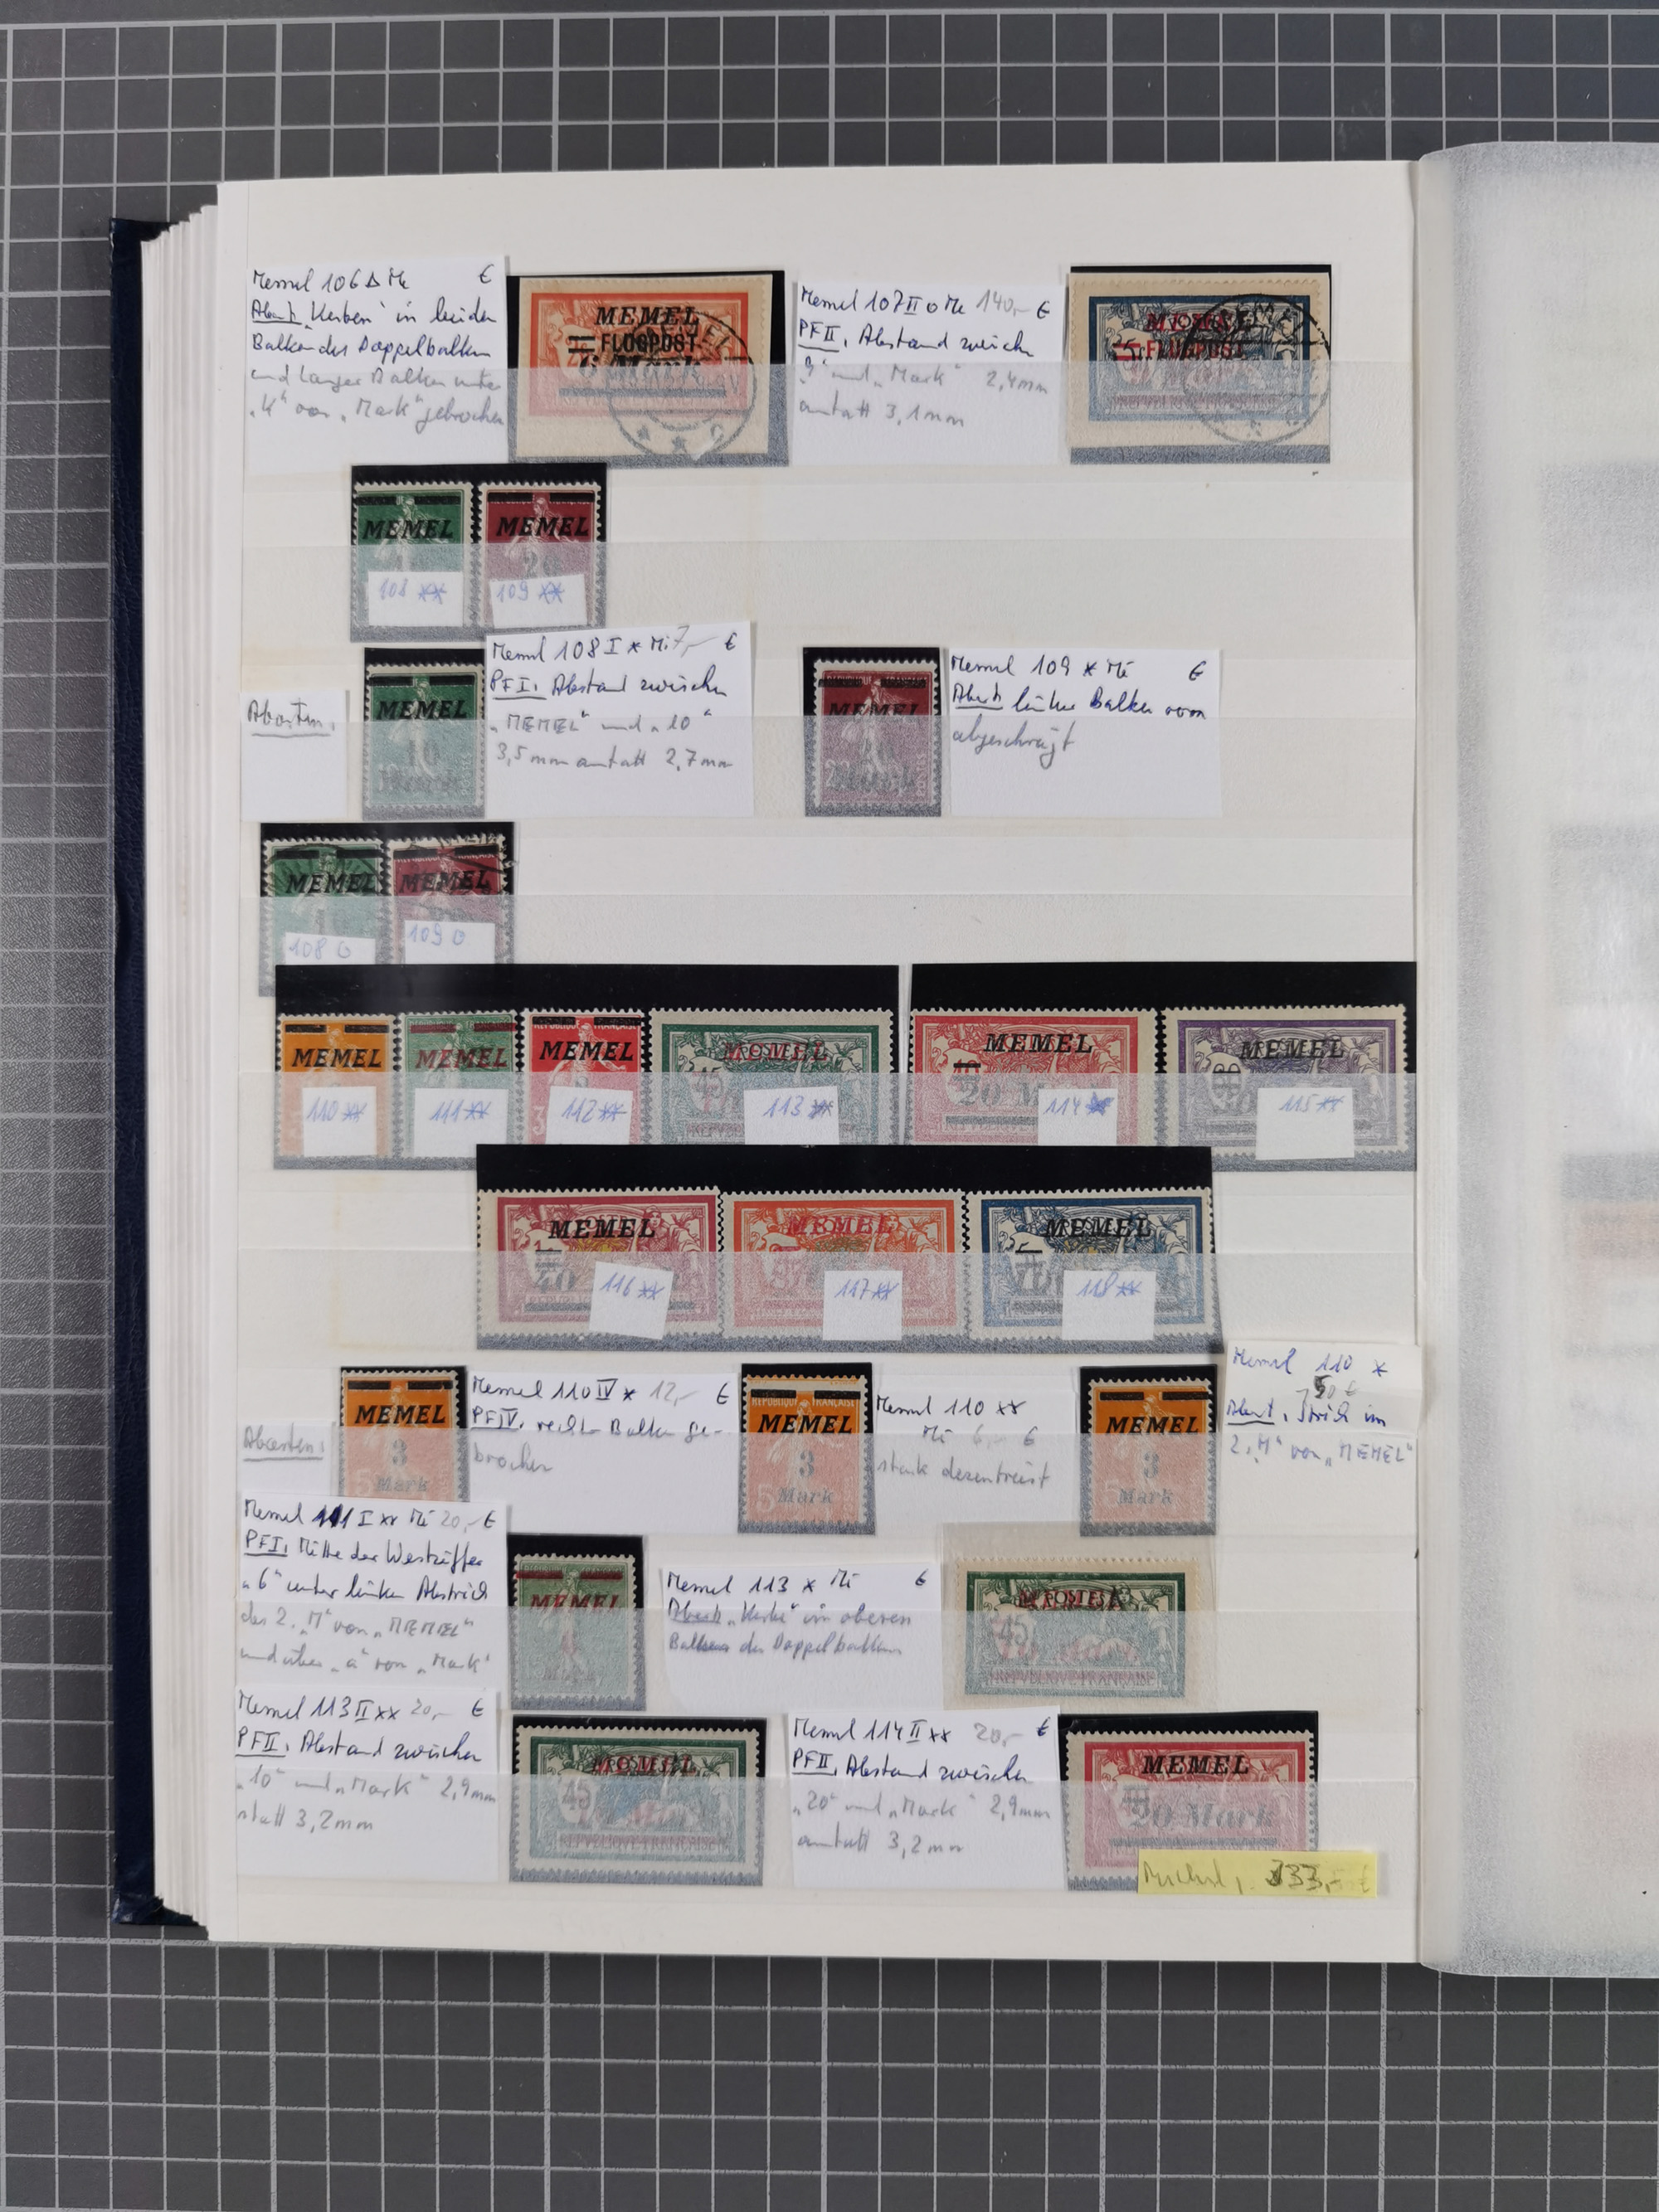 Memel 106 Δ Mi €
Abart: "Kerben" in beiden
Balken des Doppelbalken
und langer Balken unter
"k" von "Mark" gebrochen
MEMEL
FLUGPOST
Memel 107 II o Mi 140,- €
PF II: Abstand zwischen
"9" und "Mark" 2,4 mm
anstatt 3,1 mm
FLUGPOST
MEMEL
108 **
MEMEL
109 **
Abarten:
MEMEL
10
Memel 108 I * Mi 7,- €
PF I: Abstand zwischen
"MEMEL" und "10"
3,5 mm anstatt 2,7 mm
MEMEL
Memel 109 * Mi €
Abart: linker Balken vorn
abgeschrägt
MEMEL
108 o
MEMEL
109 o
MEMEL
110 **
MEMEL
111 **
MEMEL
112 **
MEMEL
45
113 **
MEMEL
20 M
114 *
MEMEL
115 **
MEMEL
40
116 **
MEMEL
117 **
MEMEL
118 **
Abarten:
MEMEL
3
Mark
Memel 110 IV * 12,- €
PF IV: rechter Balken ge-
brochen
REPUBLIQUE FRANÇAISE
MEMEL
3
Mark
Memel 110 **
Mi 6,- €
stark dezentriert
MEMEL
3
Mark
Memel 110 *
Abart: Strich im
2. "M" von "MEMEL"
Memel 111 I ** Mi 20,- €
PF I: Mitte der Wertziffer
"6" unter linken Abstrich
des 2. "M" von "MEMEL"
und über "a" von "Mark"
MEMEL
Memel 113 * Mi €
Abart: "Kerbe" im oberen
Balken des Doppelbalken
POSTES
45
REPVBLIQVE FRANÇAISE
Memel 113 II ** 20,- €
PF II: Abstand zwischen
"10" und "Mark" 2,9 mm
statt 3,2 mm
45
REPVBLIQVE FRANÇAISE
Memel 114 II ** 20,- €
PF II: Abstand zwischen
"20" und "Mark" 2,9 mm
anstatt 3,2 mm
MEMEL
20 Mark
Michel: 333,- €